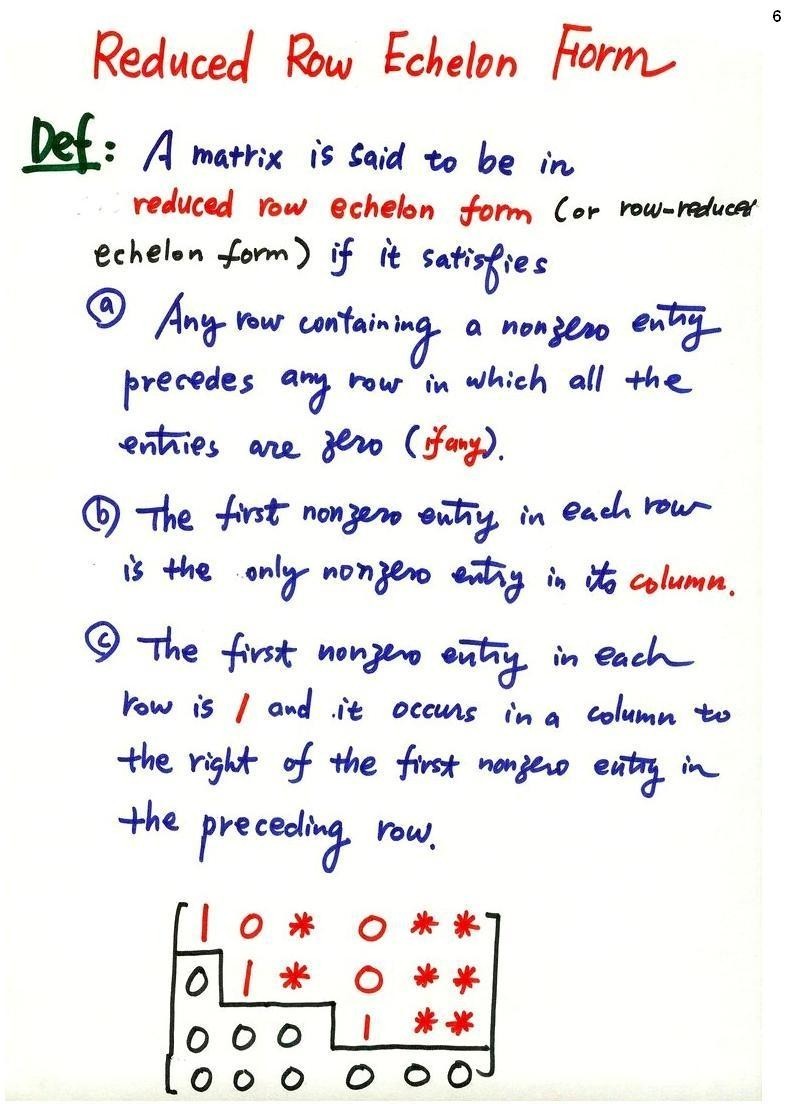 6
Reduced Row Echelon Form
Def: A matrix is said to be in
reduced row echelon form (or row-reduced
echelon form) if it satisfies
ⓐ Any row containing a nonzero entry
precedes any row in which all the
entries are zero (if any).
ⓑ The first nonzero entry in each row
is the only nonzero entry in its column.
ⓒ The first nonzero entry in each
row is 1 and it occurs in a column to
the right of the first nonzero entry in
the preceding row.
1 0 * 0 * *
0 1 * 0 * *
0 0 0 1 * *
0 0 0 0 0 0